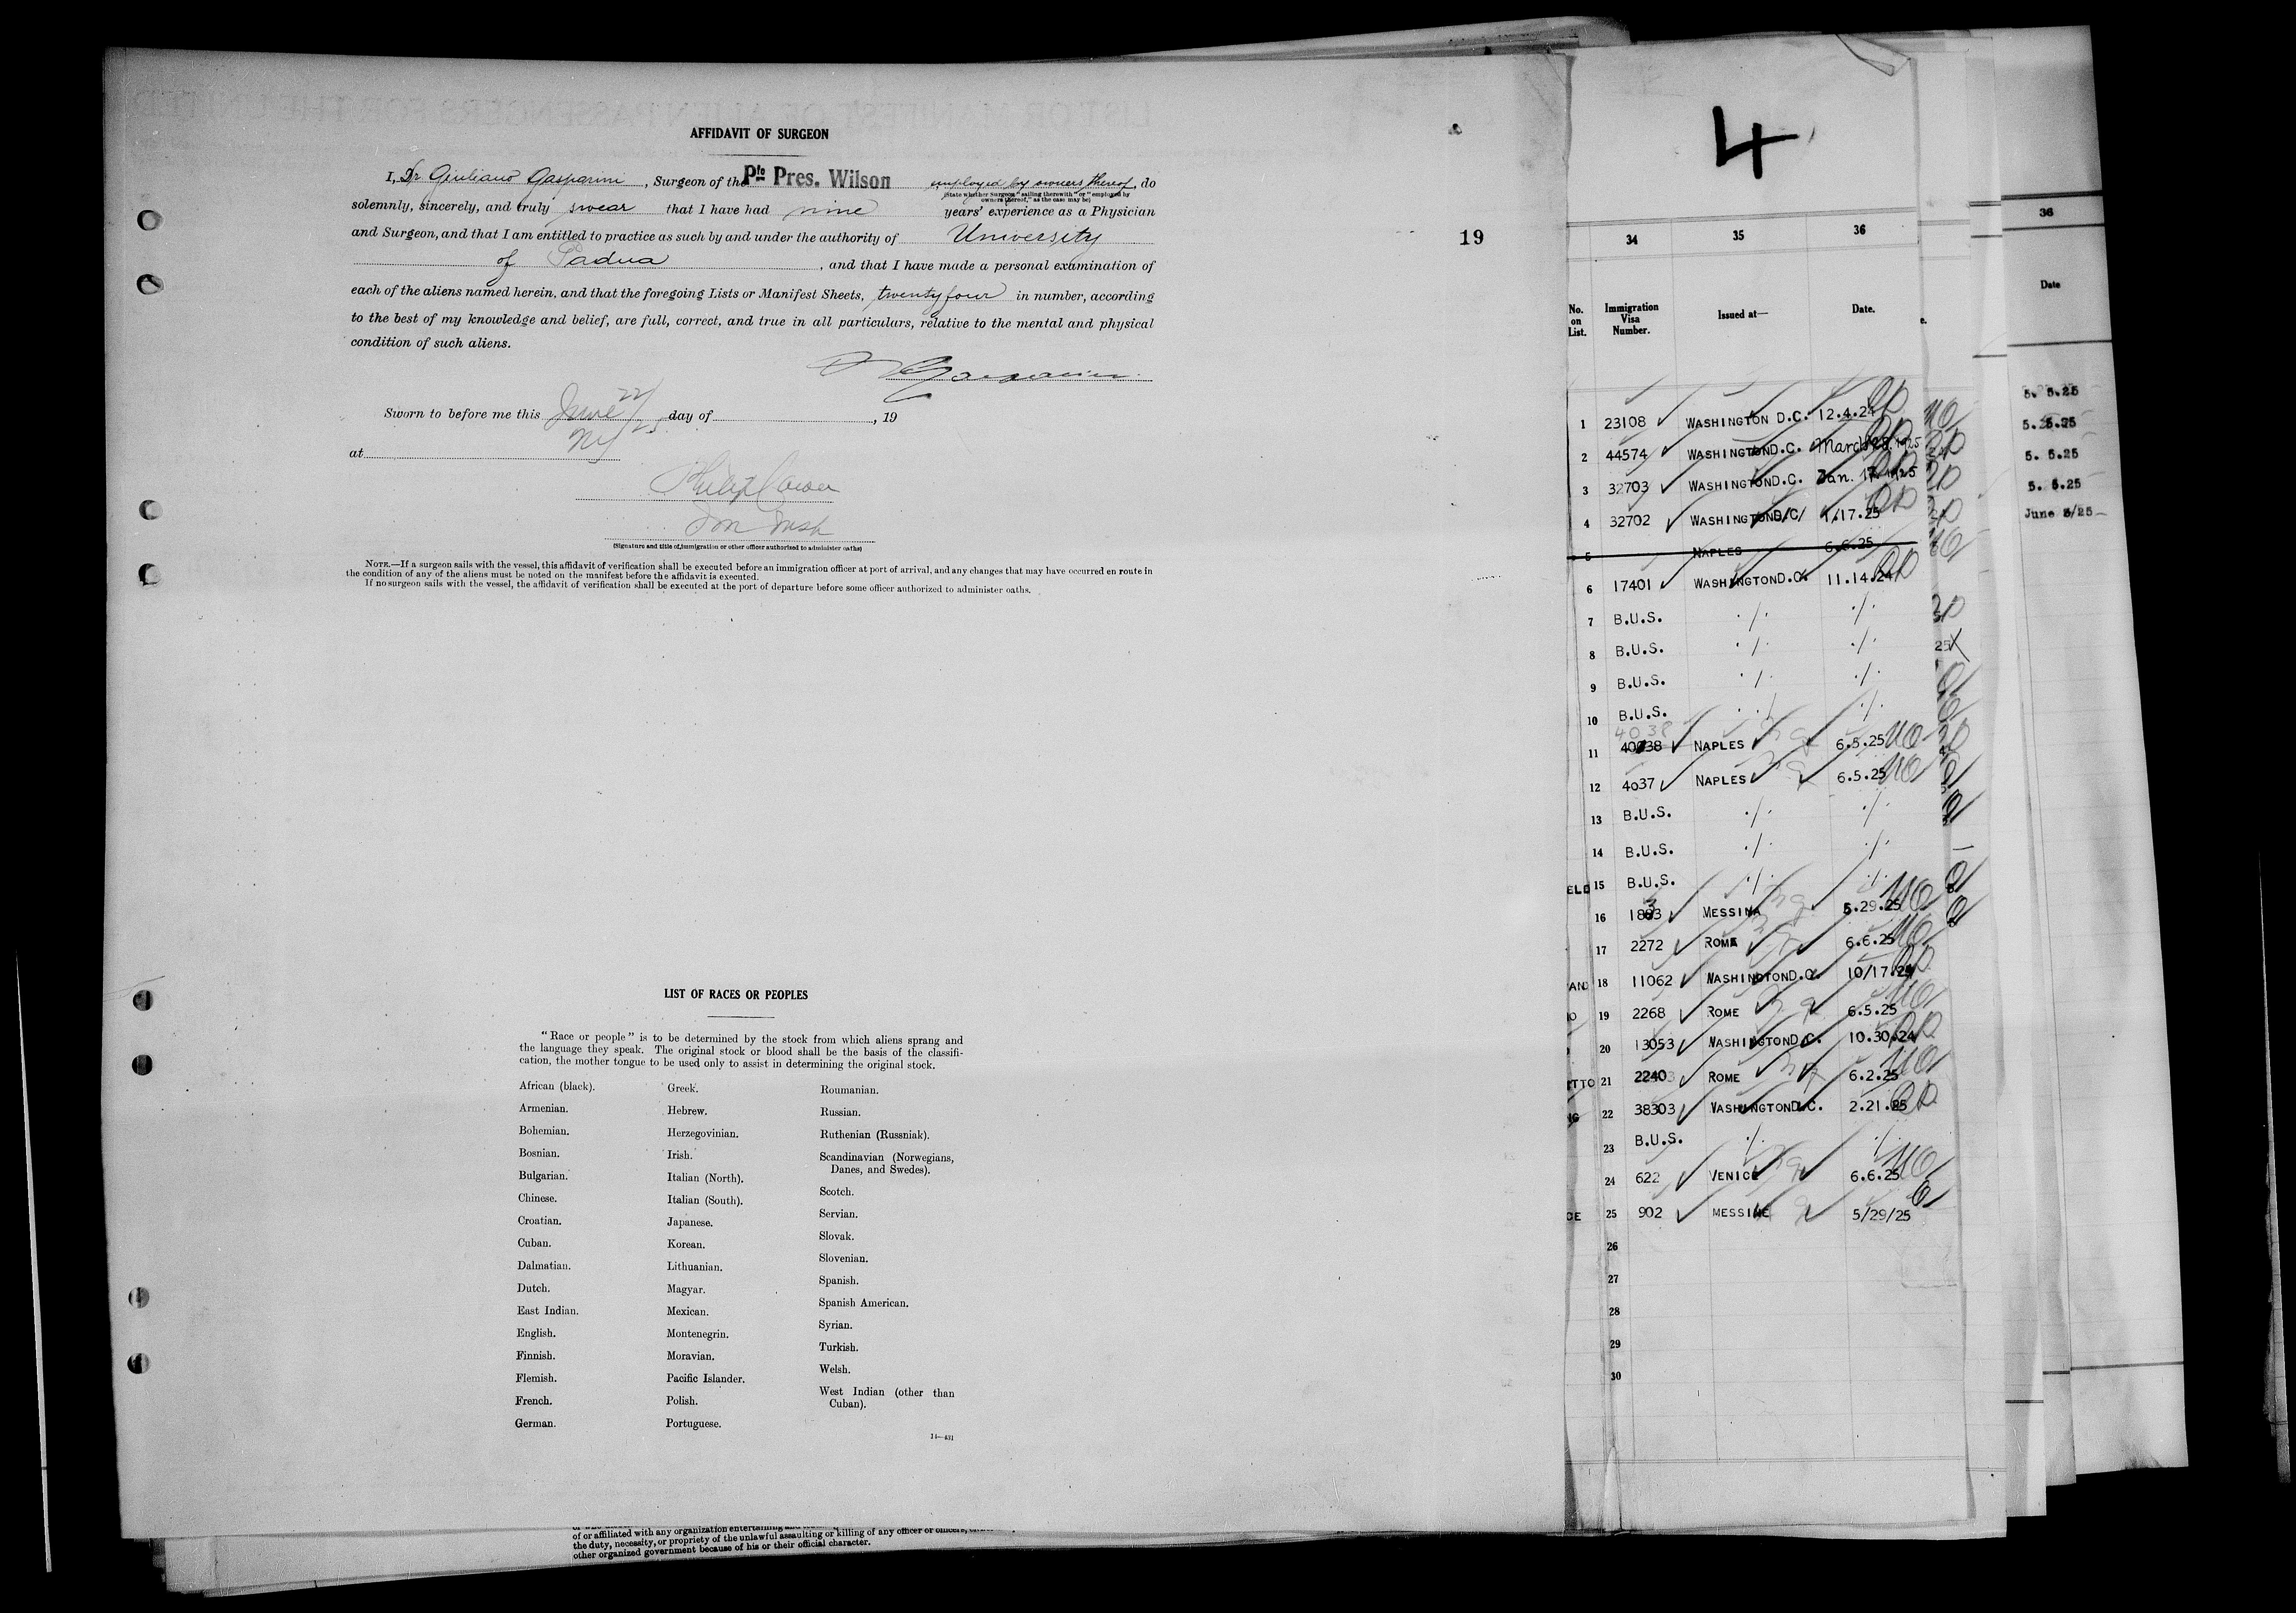 AFFIDAVIT OF SURGEON
I, Dr Giuliano Gasparini, Surgeon of the Pfo Pres. Wilson employed by owners thereof, do
(State whether Surgeon "sailing therewith" or "employed by
owners thereof," as the case may be)
solemnly, sincerely, and truly swear that I have had nine years' experience as a Physician
and Surgeon, and that I am entitled to practice as such by and under the authority of University
of Padua, and that I have made a personal examination of
each of the aliens named herein, and that the foregoing Lists or Manifest Sheets, twenty four in number, according
to the best of my knowledge and belief, are full, correct, and true in all particulars, relative to the mental and physical
condition of such aliens.
Sworn to before me this June 22/25 day of , 19
at NY
Imm Insp
(Signature and title of immigration or other officer authorized to administer oaths)
NOTE.—If a surgeon sails with the vessel, this affidavit of verification shall be executed before an immigration officer at port of arrival, and any changes that may have occurred en route in
the condition of any of the aliens must be noted on the manifest before the affidavit is executed.
If no surgeon sails with the vessel, the affidavit of verification shall be executed at the port of departure before some officer authorized to administer oaths.
19
LIST OF RACES OR PEOPLES
"Race or people" is to be determined by the stock from which aliens sprang and
the language they speak. The original stock or blood shall be the basis of the classifi-
cation, the mother tongue to be used only to assist in determining the original stock.
African (black).
Armenian.
Bohemian.
Bosnian.
Bulgarian.
Chinese.
Croatian.
Cuban.
Dalmatian.
Dutch.
East Indian.
English.
Finnish.
Flemish.
French.
German.
Greek.
Hebrew.
Herzegovinian.
Irish.
Italian (North).
Italian (South).
Japanese.
Korean.
Lithuanian.
Magyar.
Mexican.
Montenegrin.
Moravian.
Pacific Islander.
Polish.
Portuguese.
Roumanian.
Russian.
Ruthenian (Russniak).
Scandinavian (Norwegians,
Danes, and Swedes).
Scotch.
Servian.
Slovak.
Slovenian.
Spanish.
Spanish American.
Syrian.
Turkish.
Welsh.
West Indian (other than
Cuban).
14—431
of or affiliated with any organization entertaining and
the duty, necessity, or propriety of the unlawful assaulting or killing of any officer or officers,
other organized government because of his or their official character.
4
34 35 36
No. on List. Immigration Visa Number. Issued at— Date.
1 23108 WASHINGTON D.C. 12.4.24
2 44574 WASHINGTOND.C. March 28, 1925
3 32703 WASHINGTOND.C. Jan. 17 1925
4 32702 WASHINGTOND/C/ 1/17.25
5 NAPLES 6.6.25
6 17401 WASHINGTOND.C. 11.14.24
7 B.U.S. ./. ./.
8 B.U.S. ./. ./.
9 B.U.S. ./. ./.
10 B.U.S. ./. ./.
4038
11 40038 NAPLES 6.5.25
12 4037 NAPLES 6.5.25
13 B.U.S. ./. ./.
14 B.U.S. ./. ./.
ELD 15 B.U.S. ./. ./.
16 MESSINA 5.29.25
17 2272 ROME 6.6.25
AND 18 11062 WASHINGTOND.C. 10/17.24
19 2268 ROME 6.5.25
20 13053 WASHINGTOND.C. 10.30.24
TTO 21 2240 ROME 6.2.25
22 38303 WASHINGTOND.C. 2.21.25
23 B.U.S. ./. ./.
24 622 VENICE 6.6.25
25 902 MESSINE 5/29/25
26
27
28
29
30
36
Date
5. 5.25
5. 5.25
5. 5.25
5. 5.25
June 5/25